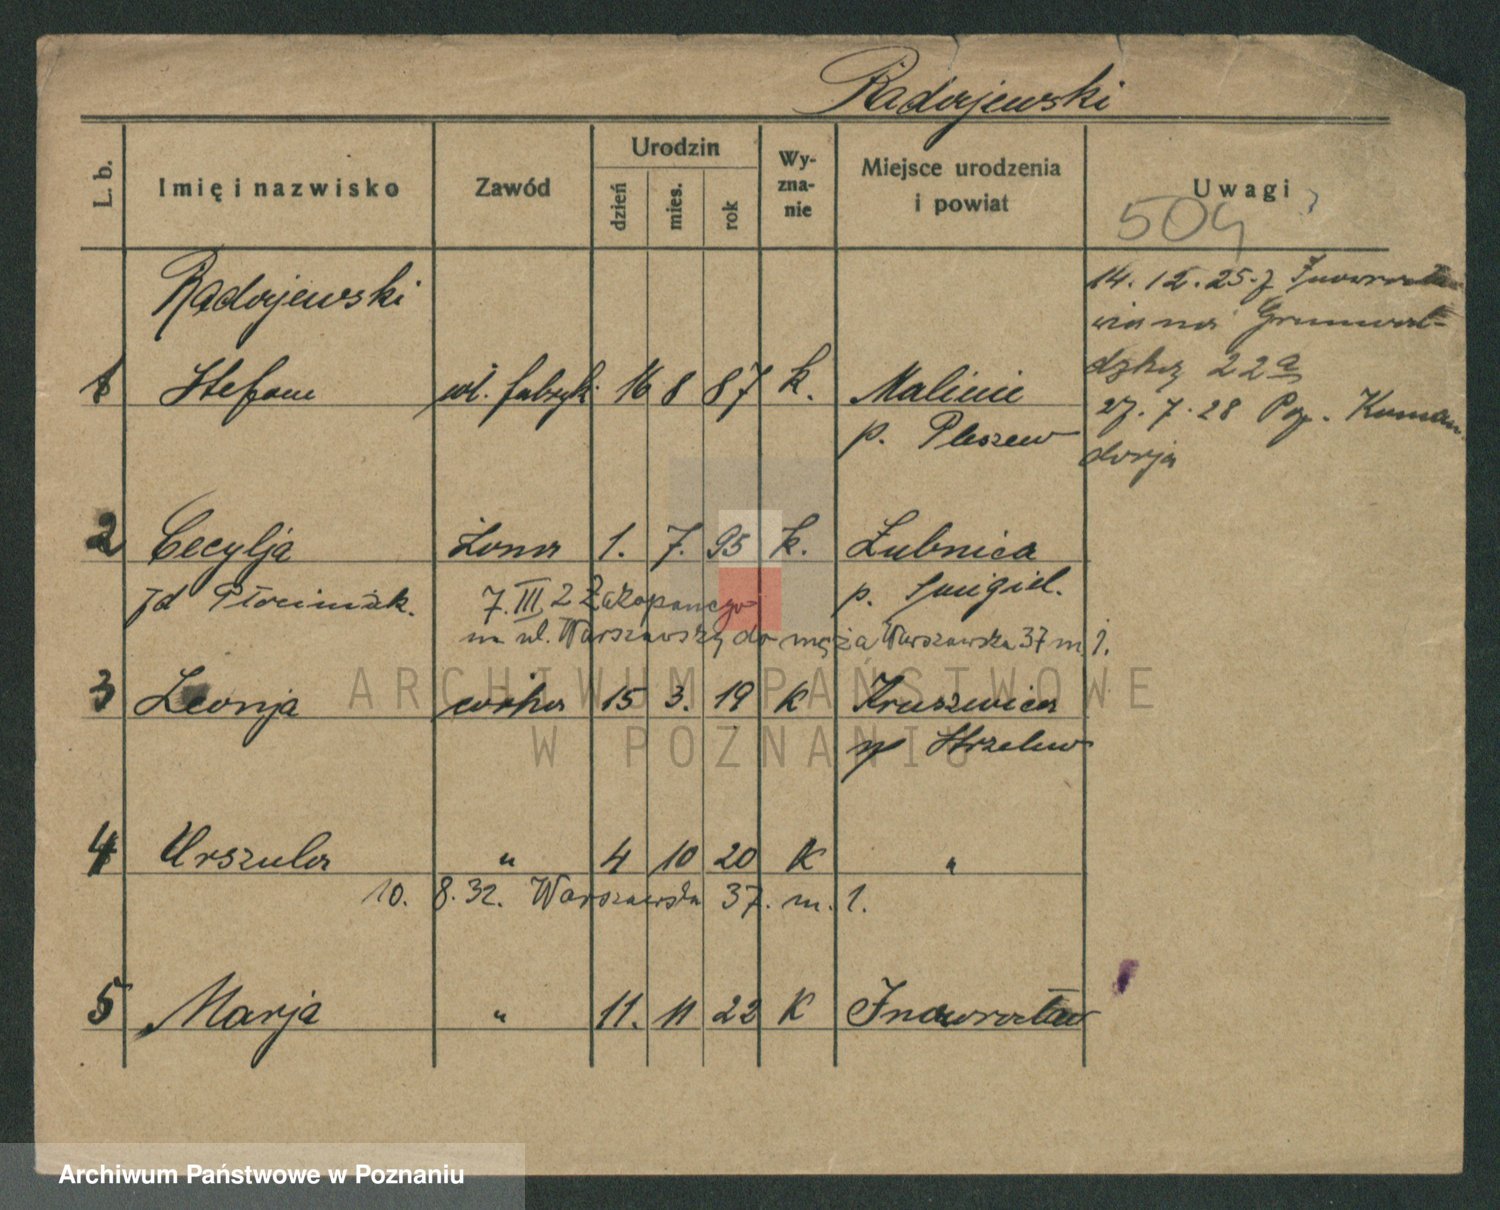 Radojewski
L. b.
Imię i nazwisko
Zawód
Urodzin
dzień
mies.
rok
Wy-
zna-
nie
Miejsce urodzenia
i powiat
Uwagi
504
Radojewski
1 Stefan wł. fabryk. 16 8 87 k. Malinie
p. Pleszew
14. 12. 25. z Inowrocła
wia na Grunwal-
dzką 22a
27. 7. 28 Koman
dorja
2 Cecylja żona 1. 7. 95 k. Łubnica
p. Śmigiel.
7. III 2 Zakopanego
na ul. Warszawską do męża Warszawska 37 m 1.
3 Leonja córka 15 3. 19 k Kruszwica
p Strzelno
4 Urszula " 4 10 20 K "
10. 8. 32. Warszawska 37. m. 1.
5 Marja " 11. 11 22 K Inowrocław
ARCHIWUM PAŃSTWOWE
W POZNANIU
Archiwum Państwowe w Poznaniu